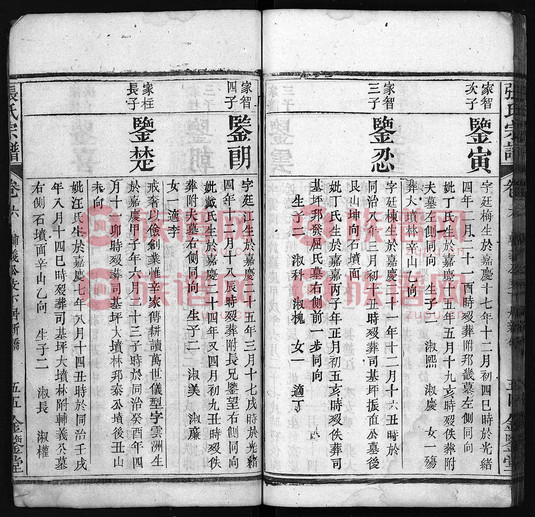 張氏宗譜
家智
次子
鑒寅
字廷梅生於嘉慶十七年十二月初四巳時於光緒
四年八月二十一酉時歿葬附邦畿墓左側同向
妣丁氏生於嘉慶二十五年五月十九亥時歿佚葬附
夫墓左側同向 生子二 淑熙 淑慶 女一殤
葬大墳林辛山乙向
家智
三子
鑒忍
字廷棟生於嘉慶二十一年十二月十六丑時於
同治八年三月初十丑時歿葬司基坪振直公墓後
艮山坤向石墳面
妣丁氏生於嘉慶丙子年正月初五亥時歿佚葬司
基坪邦發屈氏墓右側前一步同向
生子二 淑科 淑槐 女一 適丁
金鑒堂
張氏宗譜
卷六
五五
金鑒堂
家智
四子
鑒朗
字廷江生於嘉慶二十五年三月十七戌時於光緒
四年十二月十八辰時歿葬附長兄鑒望右側同向
妣歐氏生於嘉慶二十四年又四月初九丑時歿佚
葬附夫墓右側同向 生子二 淑美 淑廉
女一適李
家枉
長子
鑒楚
戒奢以儉創業維辛家傳耕讀萬世儀型字雲洲生
於嘉慶甲子年六月十三子時於同治癸酉年四
月十一卯時歿葬司基坪大墳林邦泰公墳後丑山
未向
妣汪氏生於嘉慶七年八月十四丑時於同治壬戌
年八月十四巳時歿葬司基坪大墳林附輔義公墓
右側石墳面辛山乙向 生子二 淑長 淑權